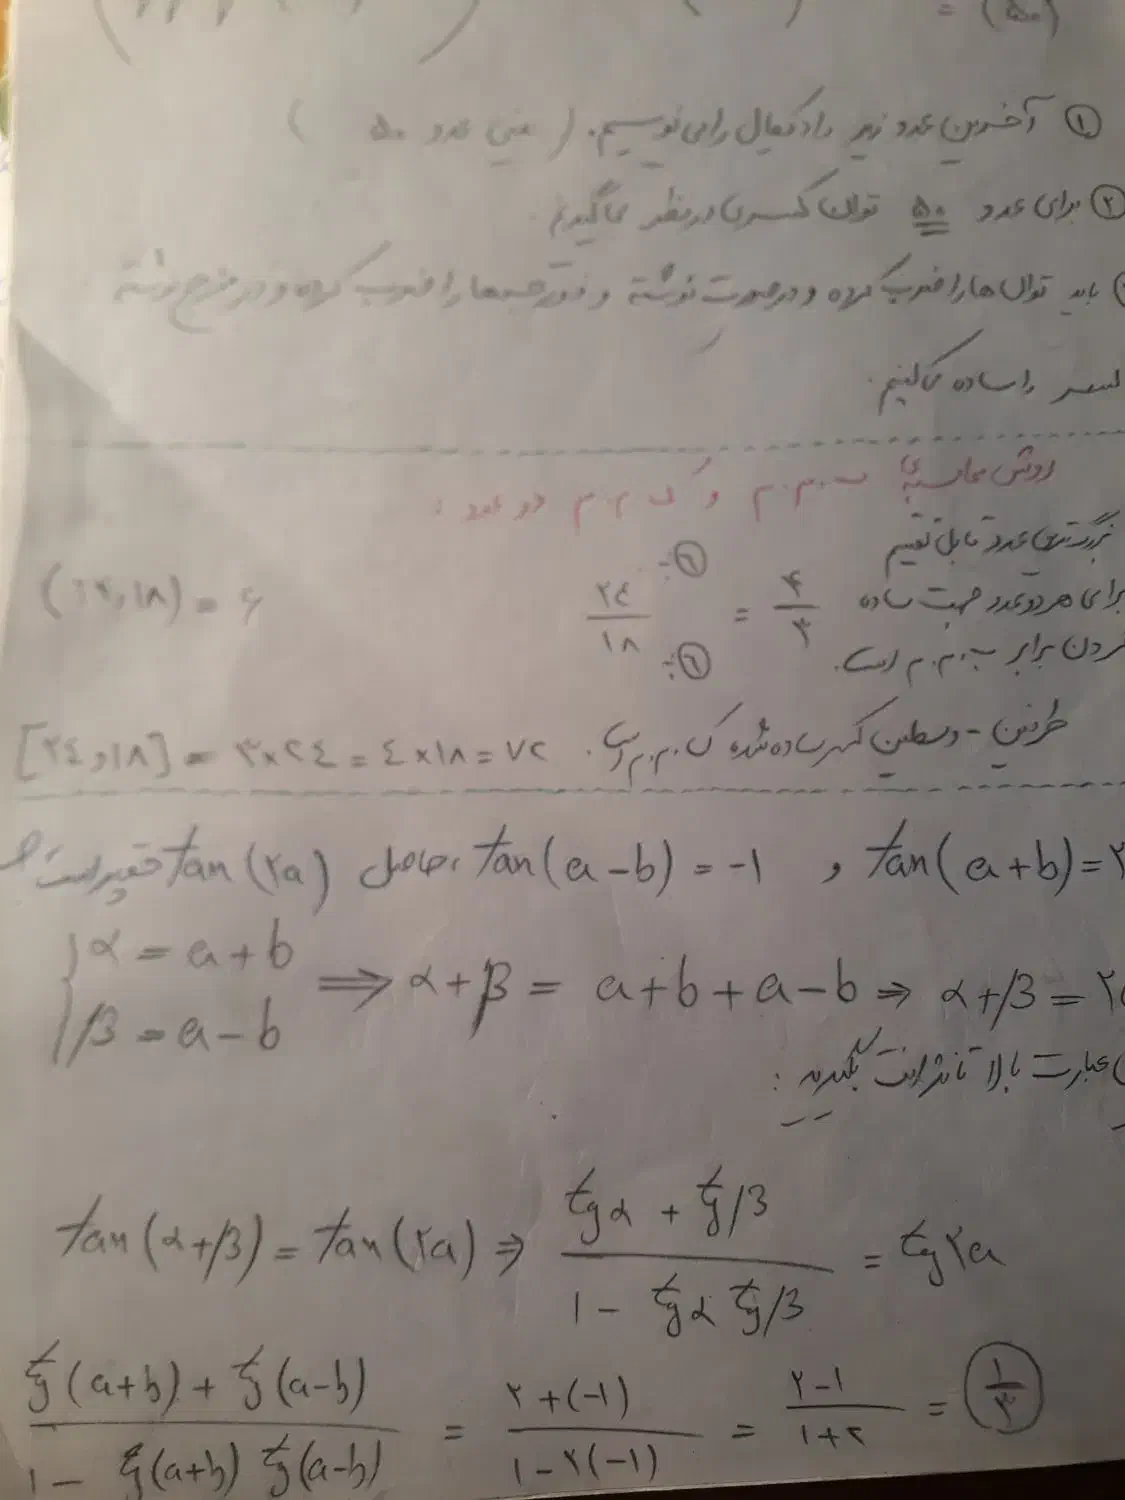 (۵۰) =
① آخرین عدد زیر رادیکال را می نویسیم. (یعنی عدد ۵۰)
② برای عدد ۵۰ توان کسری در نظر می گیریم.
باید توان ها را ضرب کرده و در صورت نوشته و فرجه ها را ضرب کرده و در مخرج نوشته
کسر را ساده می کنیم.
روش محاسبهٔ ب.م.م و ک.م.م دو عدد:
بزرگترین عدد قابل تقسیم
برای هر دو عدد جهت ساده
کردن برابر ب.م.م است.
۲۴/۱۸ = ۴/۳
÷⑥
÷⑥
(۲۴,۱۸) = ۶
طرفین - وسطین کسر ساده شده ک.م.م است. [۲۴و۱۸] = ۳×۲۴ = ۴×۱۸ = ۷۲
tan(a+b)=۲ و tan(a-b) = -۱ ، حاصل tan(۲a) چقدر است؟
{α = a+b
β = a-b ⇒ α+β = a+b+a-b ⇒ α+β = ۲a
عبارت بالا تانژانت بگیرید:
tan(α+β) = tan(۲a) ⇒ (tgα + tgβ)/(۱ - tgα tgβ) = tg۲a
(tg(a+b) + tg(a-b))/(۱ - tg(a+b) tg(a-b)) = (۲+(-۱))/(۱-۲(-۱)) = (۲-۱)/(۱+۲) = ۱/۳